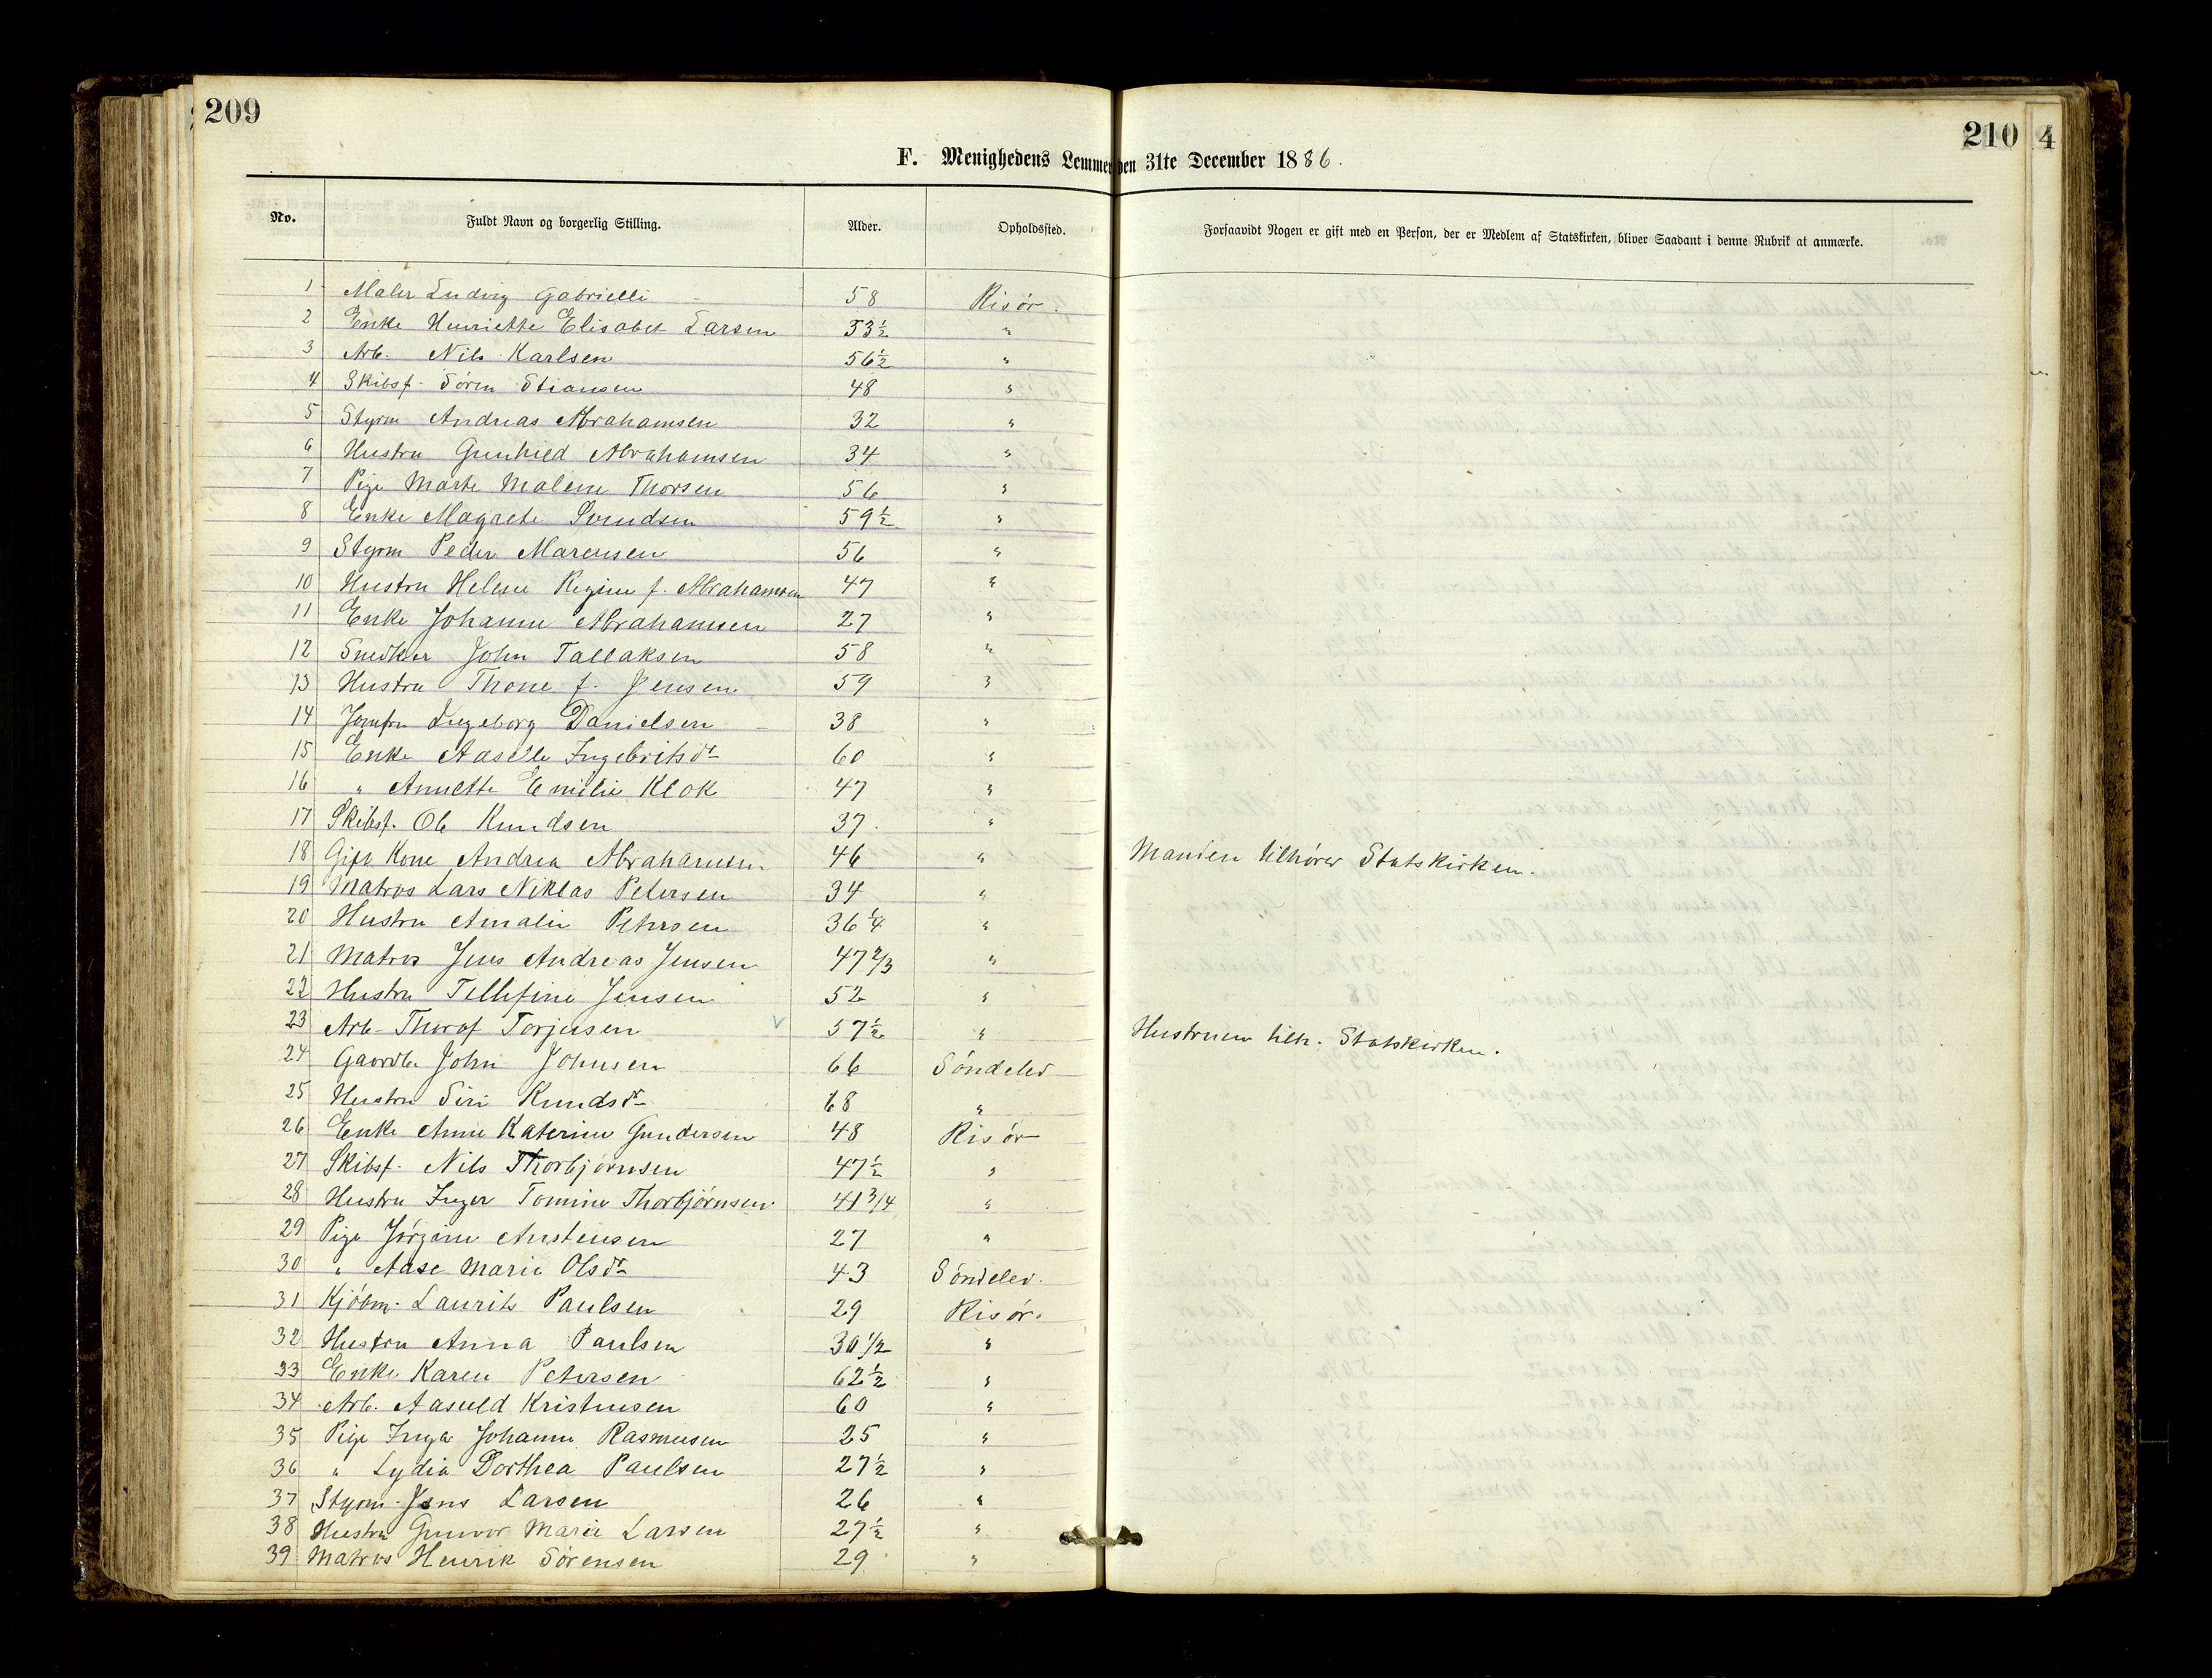 209
210
4
F. Menighedens Lemmer den 31te December 1886.
No. Fuldt Navn og borgerlig Stilling. Alder. Opholdssted. Forsaavidt Nogen er gift med en Person, der er Medlem af Statskirken, bliver Saadant i denne Rubrik at anmærke.
1 Maler Ludvig Gabrielli 58 Risør.
2 Enke Henriette Elisabet Larsen 53½ "
3 Arb. Nils Karlsen 56½ "
4 Skibsf. Sören Stiansen 48 "
5 Styrm Andreas Abrahamsen 32 "
6 Hustru Gunhild Abrahamsen 34 "
7 Pige Marte Malene Thorsen 56 "
8 Enke Magrete Svendsen 59½ "
9 Styrm Peder Marcusen 56 "
10 Hustru Helene Regine f. Abrahamsen 47 "
11 Enke Johanne Abrahamsen 27 "
12 Snedker John Tallaksen 58 "
13 Hustru Thone f. Jensen 59 "
14 Jomfru Ingeborg Danielsen 38 "
15 Enke Aaselle Ingebritsdt 60 "
16 " Annette Emilie Klok 47 "
17 Skibsf. Ole Knudsen 37. "
18 Gift Kone Andrea Abrahamsen 46 " Manden tilhører Statskirken.
19 Matros Lars Niklas Petersen 34 "
20 Hustru Amalie Petersen 36¼ "
21 Matros Jens Andreas Jensen 47 2/3 "
22 Hustru Tellefine Jensen 52 "
23 Arb- Thorof Torjusen 57½ " Hustruen tilh. Statskirken.
24 Gaardb. John Johnsen 66 Söndelev
25 Hustru Siri Knudsdt 68 "
26 Enke Anne Katerine Gundersen 48 Risör
27 Skibsf. Nils Thorbjørnsen 47½ "
28 Hustru Inger Tomine Thorbjørnsen 41 3/4 "
29 Pige Jørgine Anstensen 27 "
30 " Aase Marie Olsdt 43 Söndelev.
31 Kjöbm. Laurits Paulsen 29 Risör.
32 Hustru Anna Paulsen 30 1/2 "
33 Enke Karen Petersen 62½ "
34 Arb. Aasuld Kristensen 60 "
35 Pige Inga Johanne Rasmusen 25 "
36 " Lydia Dorthea Paulsen 27½ "
37 Styrm. Jens Larsen 26 "
38 Hustru Gunvor Marie Larsen 27½ "
39 Matros Henrik Sørensen 29 "